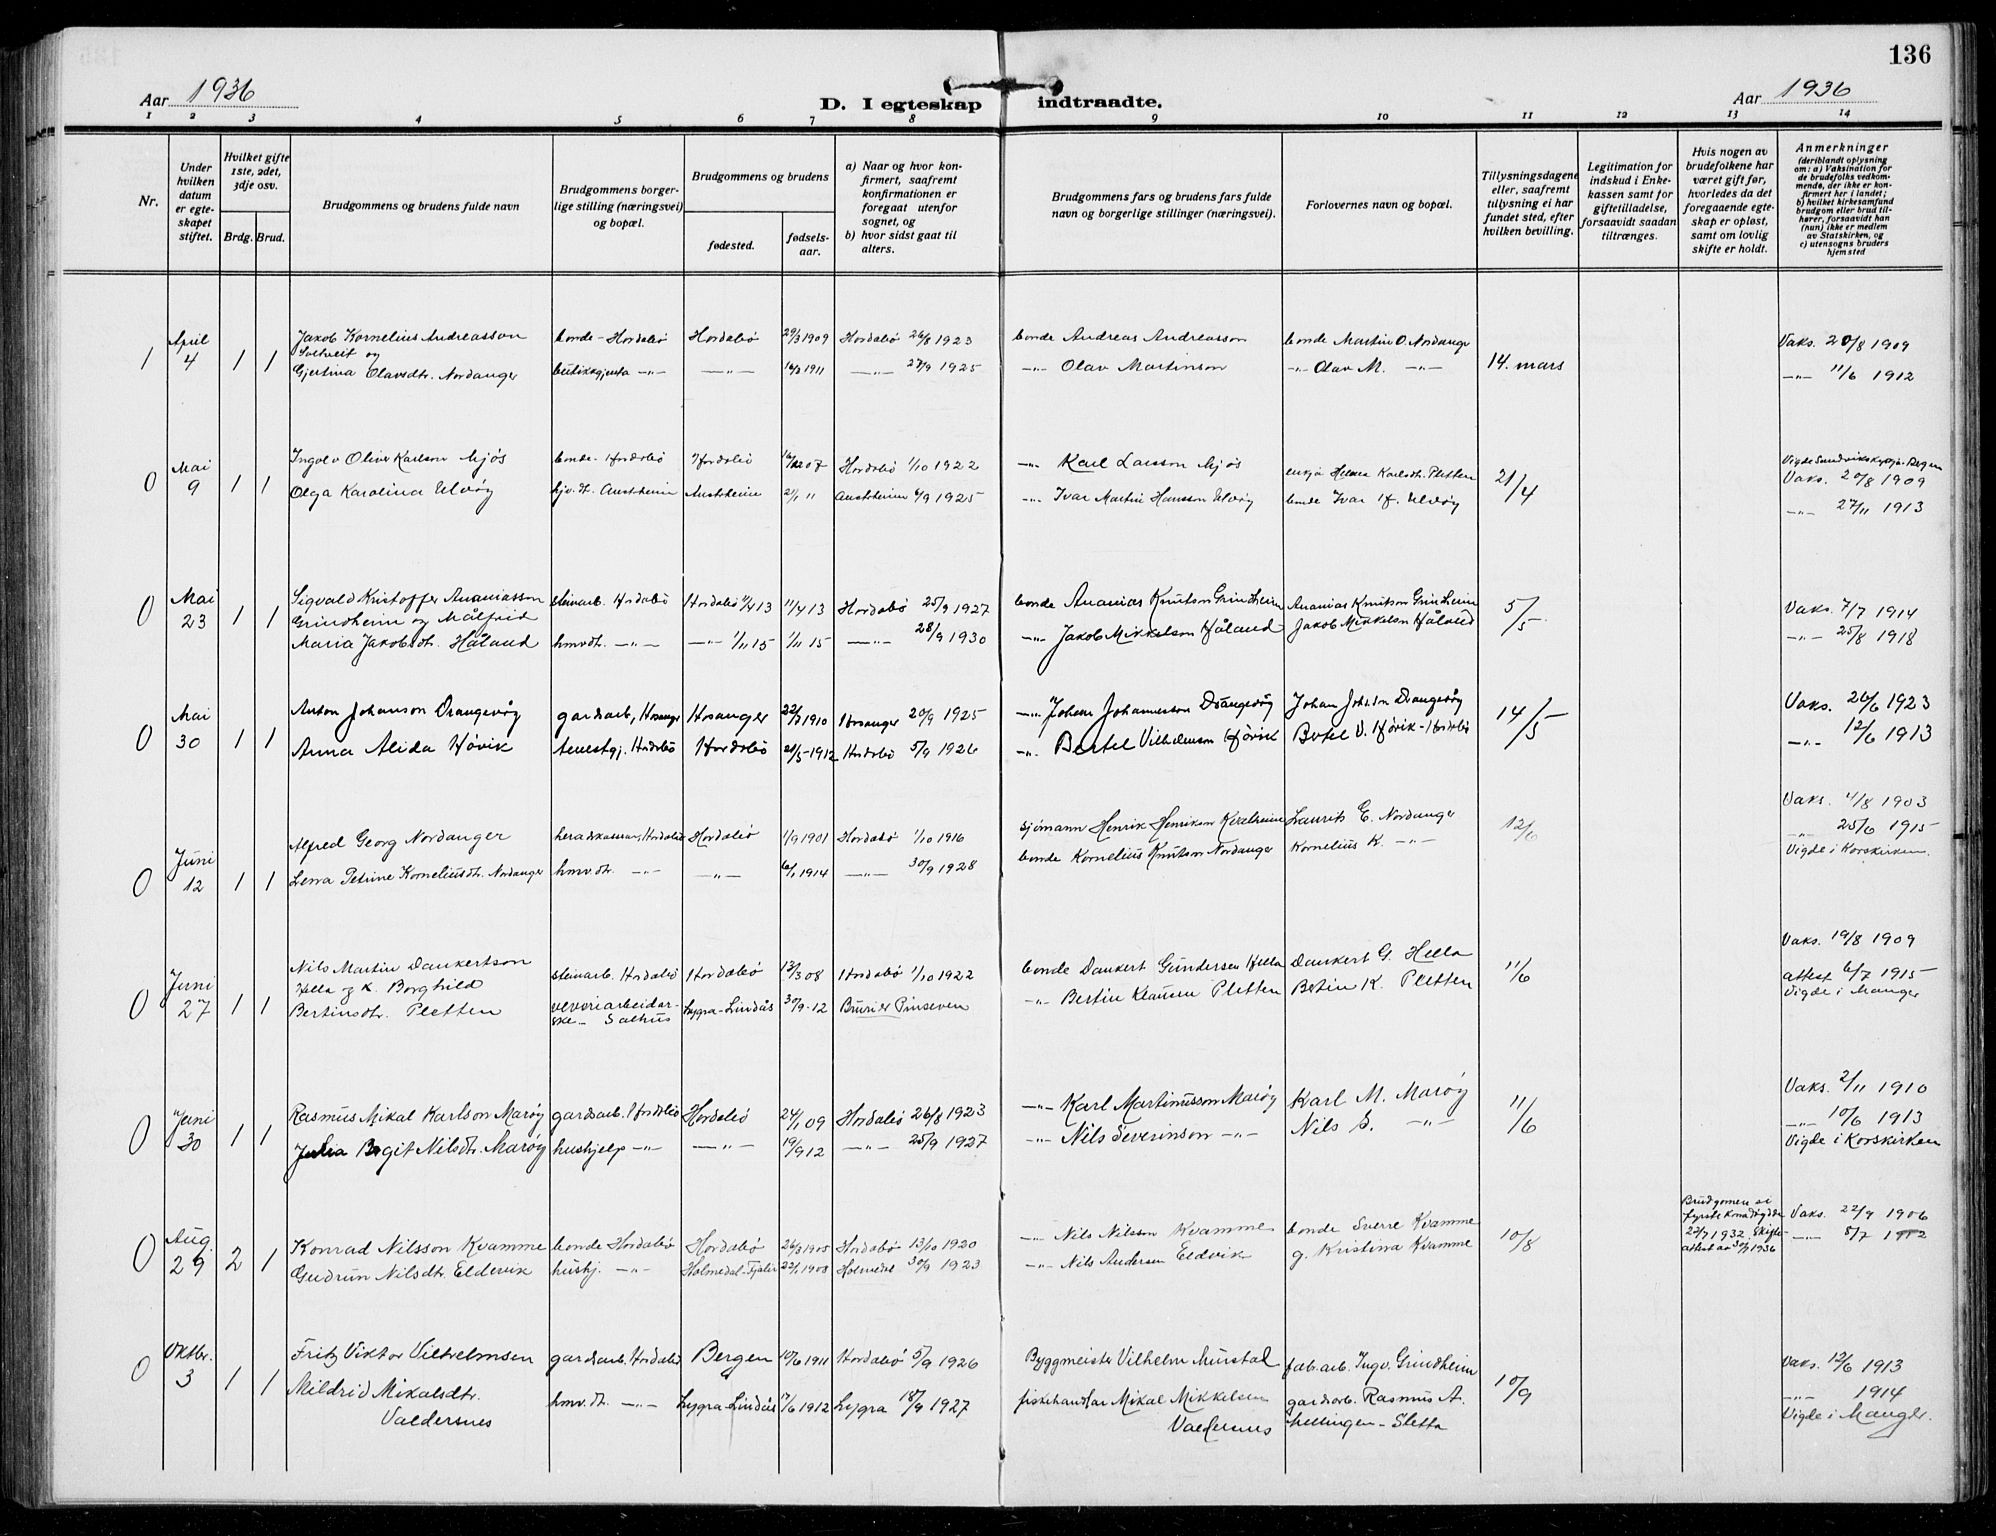 136
Aar 1936
D. I egteskap indtraadte.
Aar 1936
1 2 3 4 5 6 7 8 9 10 11 12 13 14
Nr.
Under hvilken datum er egteskapet stiftet.
Hvilket gifte 1ste, 2det, 3dje osv.
Brdg. Brud.
Brudgommens og brudens fulde navn
Brudgommens borgerlige stilling (næringsvei) og bopæl.
Brudgommens og brudens
fødested.
fødselsaar.
a) Naar og hvor konfirmert, saafremt konfirmationen er foregaat utenfor sognet, og
b) hvor sidst gaat til alters.
Brudgommens fars og brudens fars fulde navn og borgerlige stillinger (næringsvei).
Forlovernes navn og bopæl.
Tillysningsdagene eller, saafremt tillysning ei har fundet sted, efter hvilken bevilling.
Legitimation for indskud i Enkekassen samt for giftetilladelse, forsaavidt saadan tiltrænges.
Hvis nogen av brudefolkene har været gift før, hvorledes da det foregaaende egteskap er opløst, samt om lovlig skifte er holdt.
Anmerkninger (deriblandt oplysning om: a) Vaksination for de brudefolks vedkommende, der ikke er konfirmert her i landet; b) hvilket kirkesamfund brudgom eller brud tilhører, forsaavidt han (hun) ikke er medlem av Statskirken, og c) utensogns bruders hjemsted
1 April 4 1 1 Jakob Kornelius Andreasson Soltveit og bonde - Hordabø Hordabø 29/3 1909 Hordabø 26/8 1923 bonde Andreas Andreasson bonde Martin O. Nordanger 14. mars Vaks. 20/8 1909
Gjertina Olavsdtr. Nordanger butikkgjenta -"- -"- 1911 -"- 27/9 1925 -"- Olav Martinson -"- Olav M. -"- -"- 11/6 1912
0 Mai 9 1 1 Ingolv Oliver Karlson Mjøs bonde - Hordabø Hordabø 07 Hordabø 1/10 1922 -"- Karl Larsson Mjøs enkja Helena Karlsdtr. Pletten 21/4 Vaks. 20/8 1909
Olga Karolina Ulvøy Austrheim Austrheim 2/1 11 Austrheim 6/9 1925 -"- Ivar Martin Hansson Ulvøy bonde Ivar H. Ulvøy -"- 27/11 1913
0 Mai 23 1 1 Sigvald Kristoffer Ananiasson Grindheim og Målfrid steinarb. Hordabø Hordabø 11/4 13 11/4 13 Hordabø 25/9 1927 bonde Ananias Knutson Grindheim Ananias Knutson Grindheim 5/5 Vaks. 7/7 1914
Maria Jakobsdtr. Håland hmvdtr. -"- -"- 1/11 15 1/11 15 -"- 28/9 1930 -"- Jakob Mikkelson Håland Jakob Mikkelson Håland -"- 25/8 1918
0 Mai 30 1 1 Anton Johanson Drangevåg gardsarb, Hosanger Hosanger 1910 Hosanger 20/9 1925 -"- Johan Johanneson Drangevåg Johan Joh.son Drangevåg 14/5 Vaks. 26/6 1923
Anna Alida Høvik tenestgj. Hordabø Hordabø 1912 Hordabø 5/9 1926 -"- Bertel Vilhelmson Høvik Bertel V. Høvik - Hordabø -"- 12/6 1913
0 Juni 12 1 1 Alfred Georg Nordanger Hordabø Hordabø 1/9 1901 Hordabø 1/10 1916 sjömann Henrik Henrikson Kvalheim Laurits E. Nordanger 12/6 Vaks. 11/8 1903
Lena Petrine Korneliusdtr. Nordanger hmv.dtr. -"- -"- 6/1 1914 -"- 30/9 1928 bonde Kornelius Knutson Nordanger Kornelius K. -"- -"- 25/6 1915
Vigde i Korskirken.
0 Juni 27 1 1 Nils Martin Dankertson Hella og K. Borghild steinarb. Hordabø Hordabø 13/3 08 Hordabø 1/10 1922 bonde Dankert Gundersen Hella Dankert G. Hella 11/6 Vaks. 19/8 1909
Bertinsdtr. Pletten veveriarbeidarske - Salhus Lygra - Lindås 30/9 - 12 -"- Bertin Klausen Pletten Bertin K. Pletten attest 6/7 1915
Vigde i Manger
0 Juni 30 1 1 Rasmus Mikal Karlson Marøy gardsarb. Hordabø Hordabø 24/1 09 Hordabø 26/8 1923 -"- Karl Martinusson Marøy Karl M. Marøy 11/6 Vaks. 2/11 1910
Julia Birgit Nilsdtr. Marøy hushjelp -"- -"- 19/9 12 -"- 25/9 1927 -"- Nils Severinson -"- Nils S. -"- -"- 10/6 1913
Vigde i Korskirken
0 Aug 29 2 1 Konrad Nilsson Kvamme bonde Hordabø Hordabø 1905 Hordabø 13/10 1920 -"- Nils Nilsson Kvamme bonde Sverre Kvamme 10/8 Vaks. 22/9 1906
Gudrun Nilsdtr. Eldevik hushj. -"- Holmedal - Fjaler 22/1 1908 Holmedal 30/9 1923 -"- Nils Andersen Eldvik g. Kristina Kvamme -"- 5/7 1912
0 Oktbr. 3 1 1 Fritz Viktor Vilhelmsen gardsarb. Hordabø Bergen 10/6 1911 Hordabø 5/9 1926 Byggmeister Vilhelm Murstad fab.arb. Ingv. Grindheim 10/9 Vaks. 12/6 1913
Mildrid Mikalsdtr. Valdersnes hmv.dtr. -"- Lygra - Lindås 17/6 1912 Lygra 18/9 1927 fiskehandlar Mikal Mikkelsen Valdersnes gardsarb. Rasmus A. -"- 1914
Vigde i Manger.